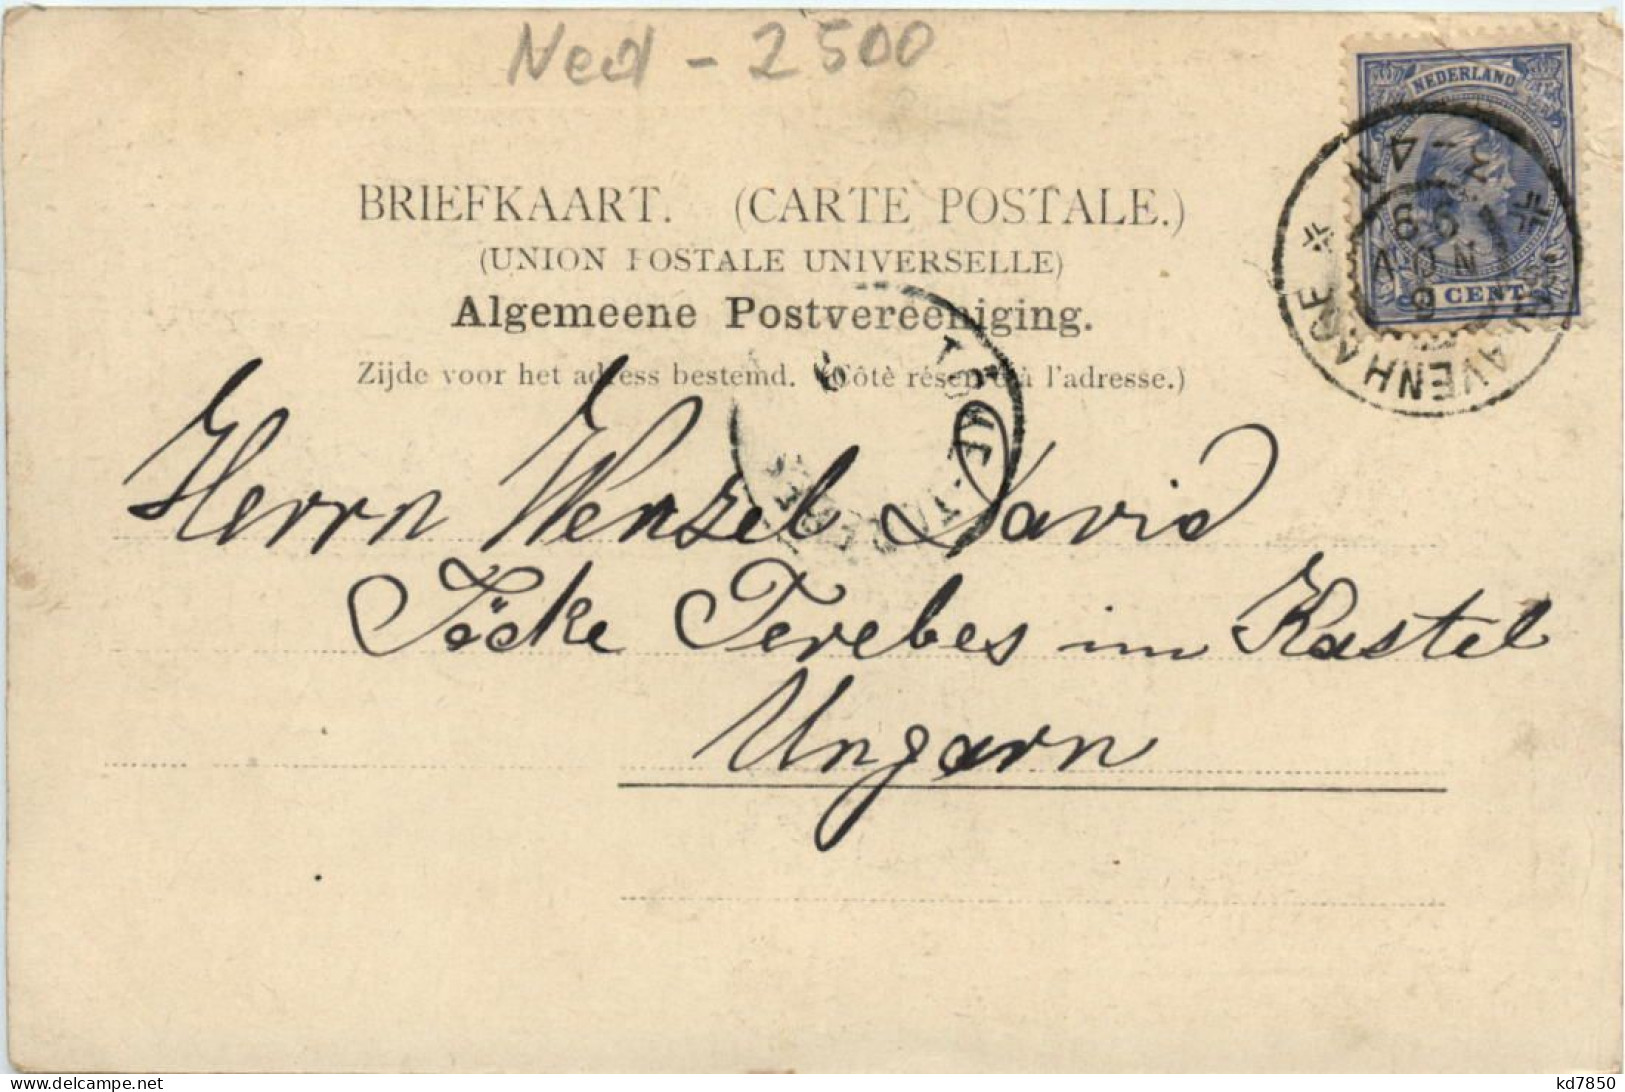 Ned - 2500
NEDERLAND
CENT
3-4N
99
NOV
'SGRAVENHAGE
BRIEFKAART. (CARTE POSTALE.)
(UNION POSTALE UNIVERSELLE)
Algemeene Postvereeniging.
Zijde voor het adress bestemd. (Côté réservé à l'adresse.)
Herrn Wenzel David
Töcke Terebes im Kastel
Ungarn
kd7850